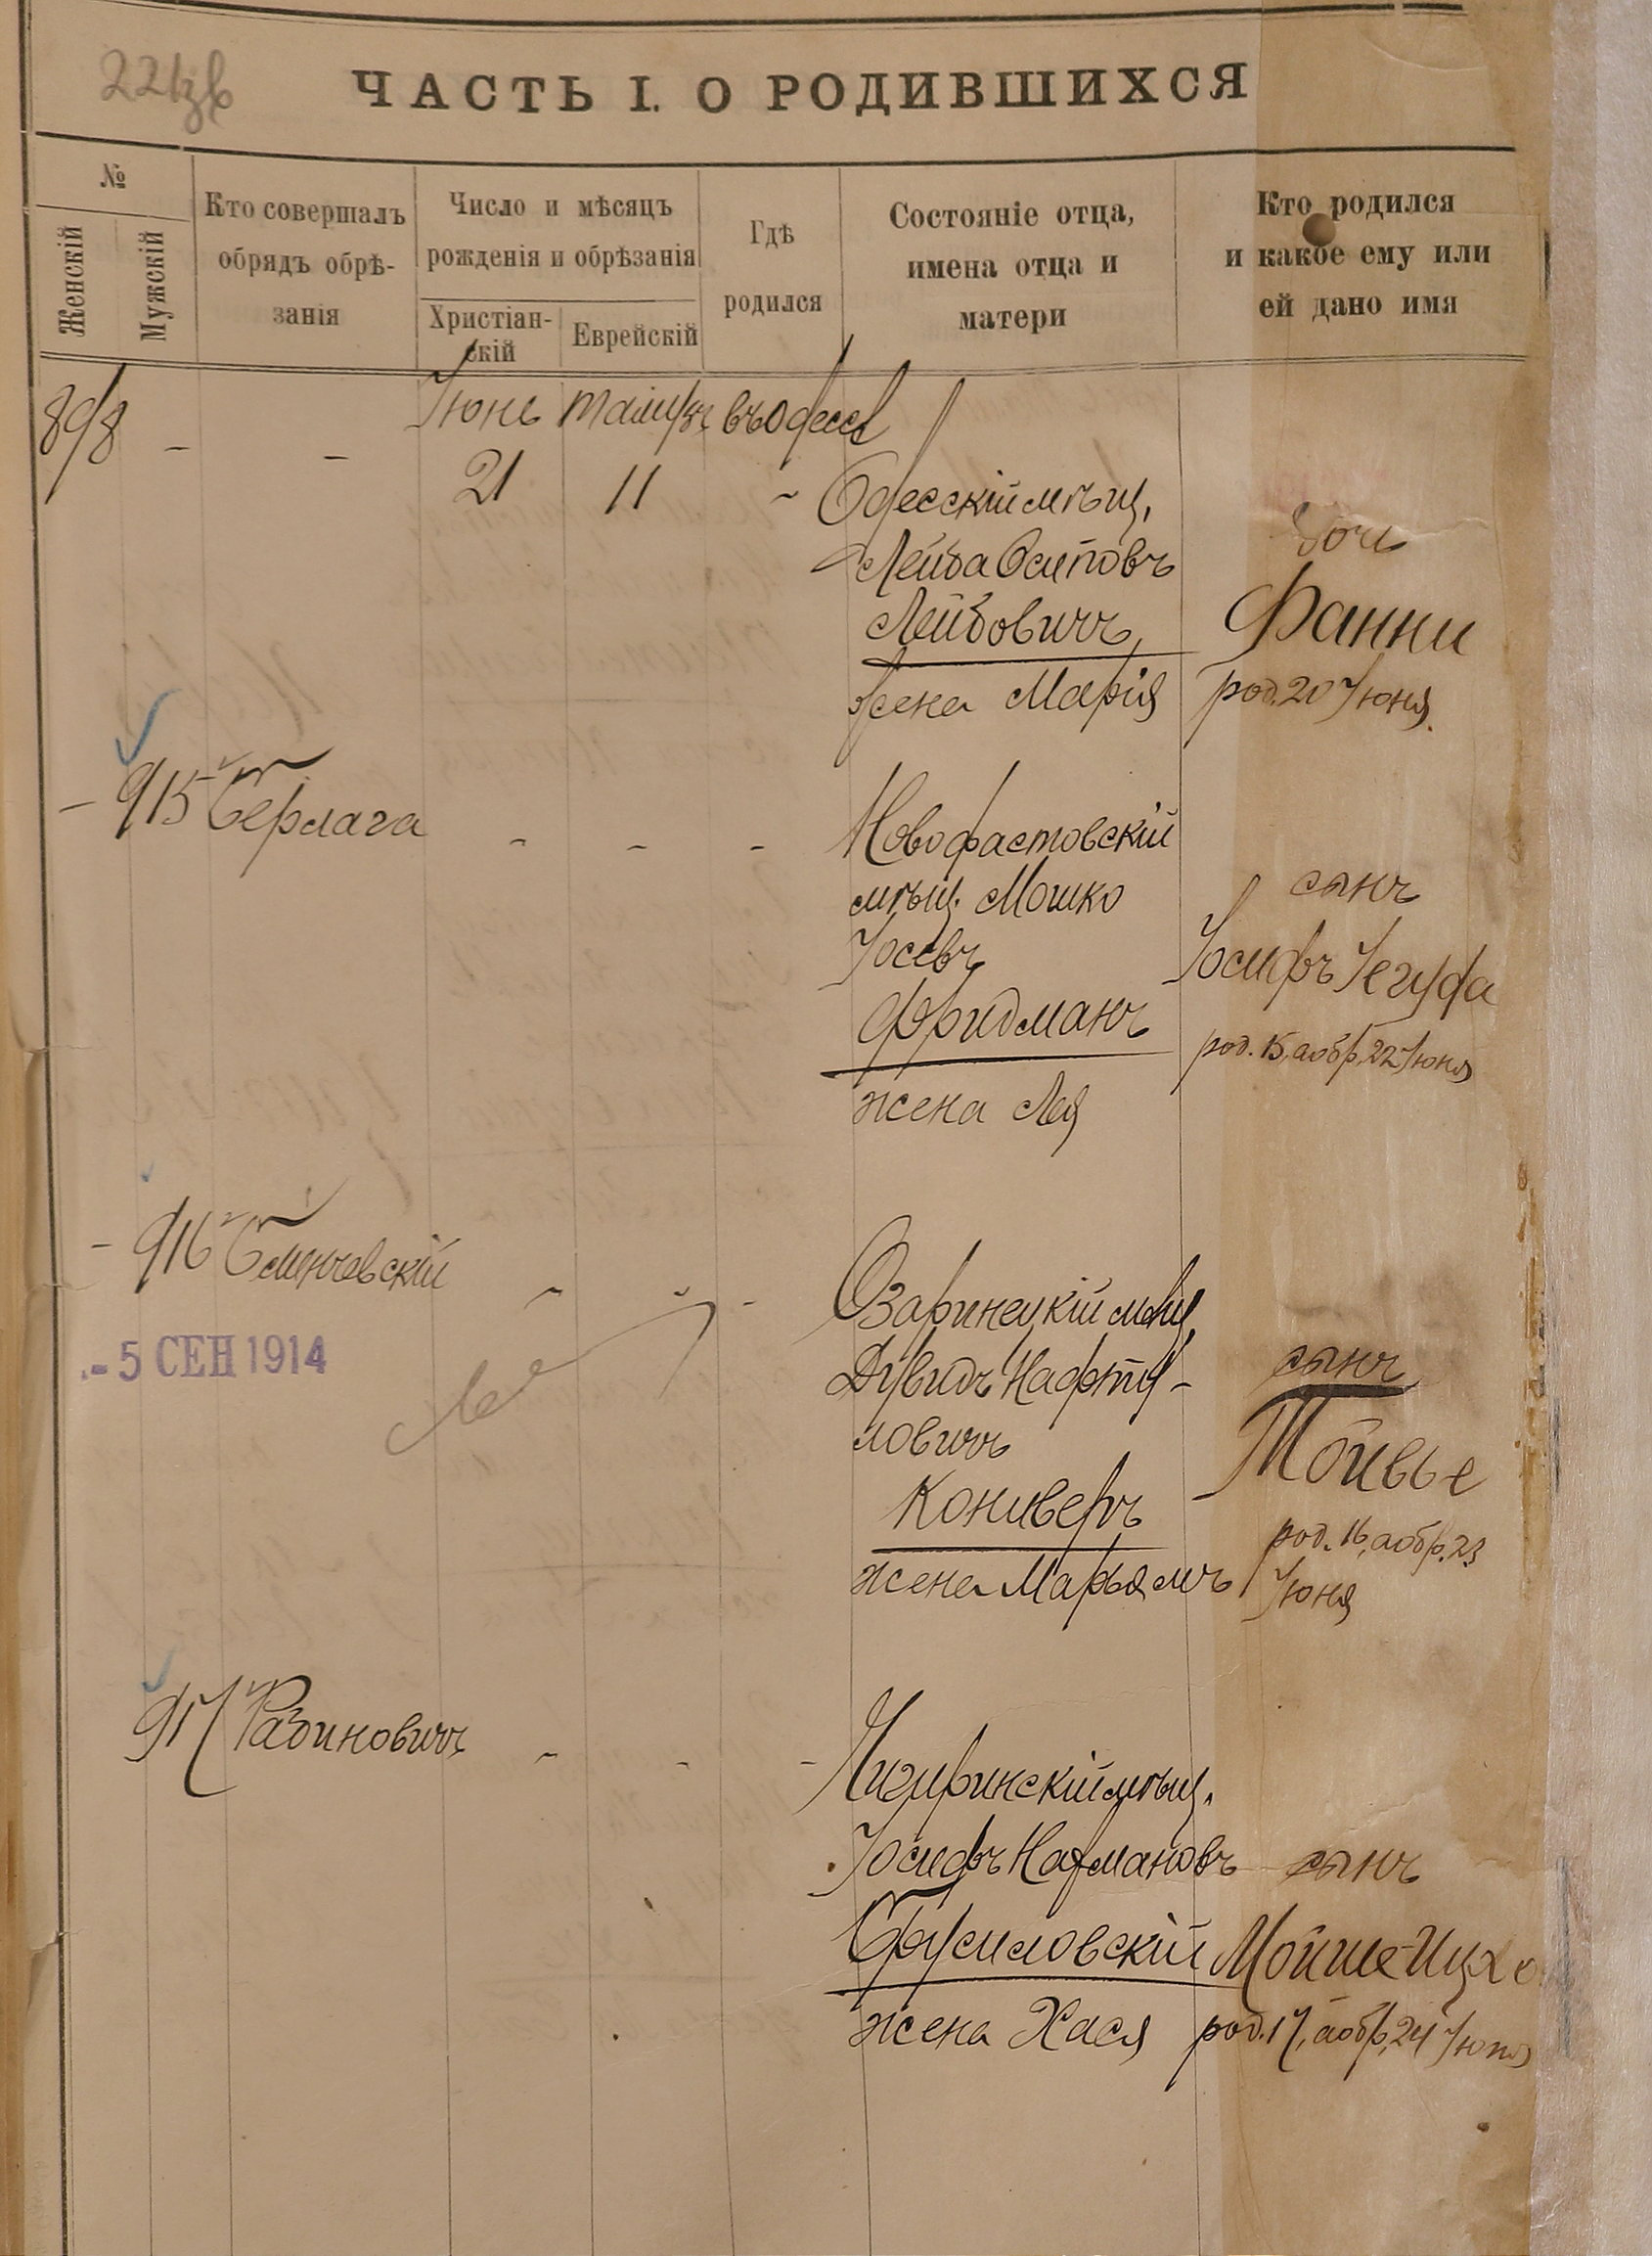 ЧАСТЬ I. О РОДИВШИХСЯ
№
Женскій
Мужскій
Кто совершалъ
обрядъ обрѣ-
занія
Число и мѣсяцъ
рожденія и обрѣзанія
Христіан-
скій
Еврейскій
Гдѣ
родился
Состояніе отца,
имена отца и
матери
Кто родился
и какое ему или
ей дано имя
Іюнь Тамузъ въ Одессѣ
898 - - 21 11 - Одесскій мѣщ.
Лейба Осиповъ
Лейбовичъ,
жена Марія
дочь
Фанни
род. 20 Іюня.
- 915 Герлага - - - Новофастовскій
мѣщ. Мошко
Іосевъ
Фридманъ
жена Лея
сынъ
Іосифъ Іегуда
род. 15, а обр. 22 Іюня
- 916 - - - Озаринецкій мѣщ.
Дувидъ Нафту-
ловичъ
Конвиеръ
жена Марьямъ
сынъ
Тойвье
род. 16, а обр. 23
Іюня
- 5 СЕН 1914
917 Рабиновичъ - - - Чигиринскій мѣщ.
Іосифъ Нахмановъ
Брусиловскій
жена Хася
сынъ
Мойше-Ицхо
род. 17, а обр. 24 Іюня